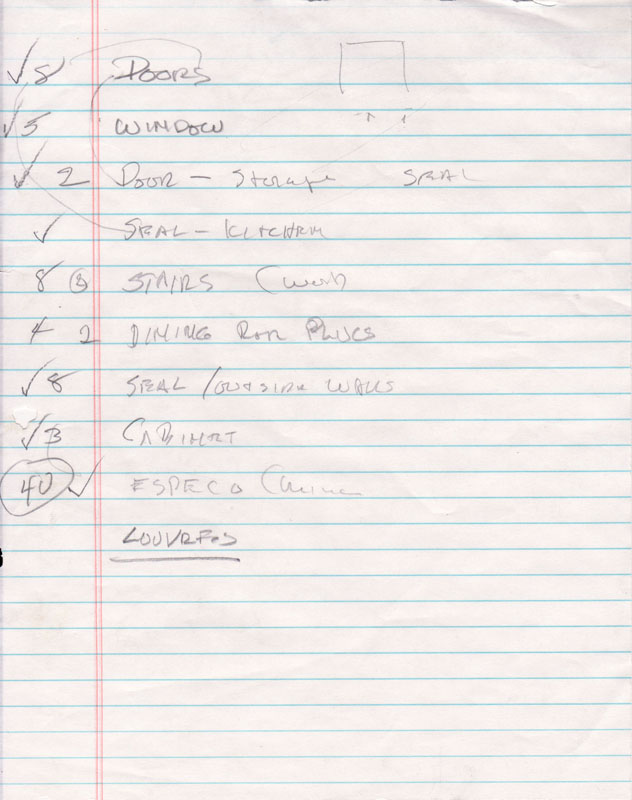 ✓ 8 DOORS
✓ 5 WINDOW
✓ 2 DOOR - Storage SEAL
✓ SEAL - KITCHEN
8 STAIRS (work
4 2 DINING ROM PLUGS
✓ 8 SEAL / OUTSIDE WALLS
✓ 3 CABINET
40 ✓ ESPECO
LOUVRES